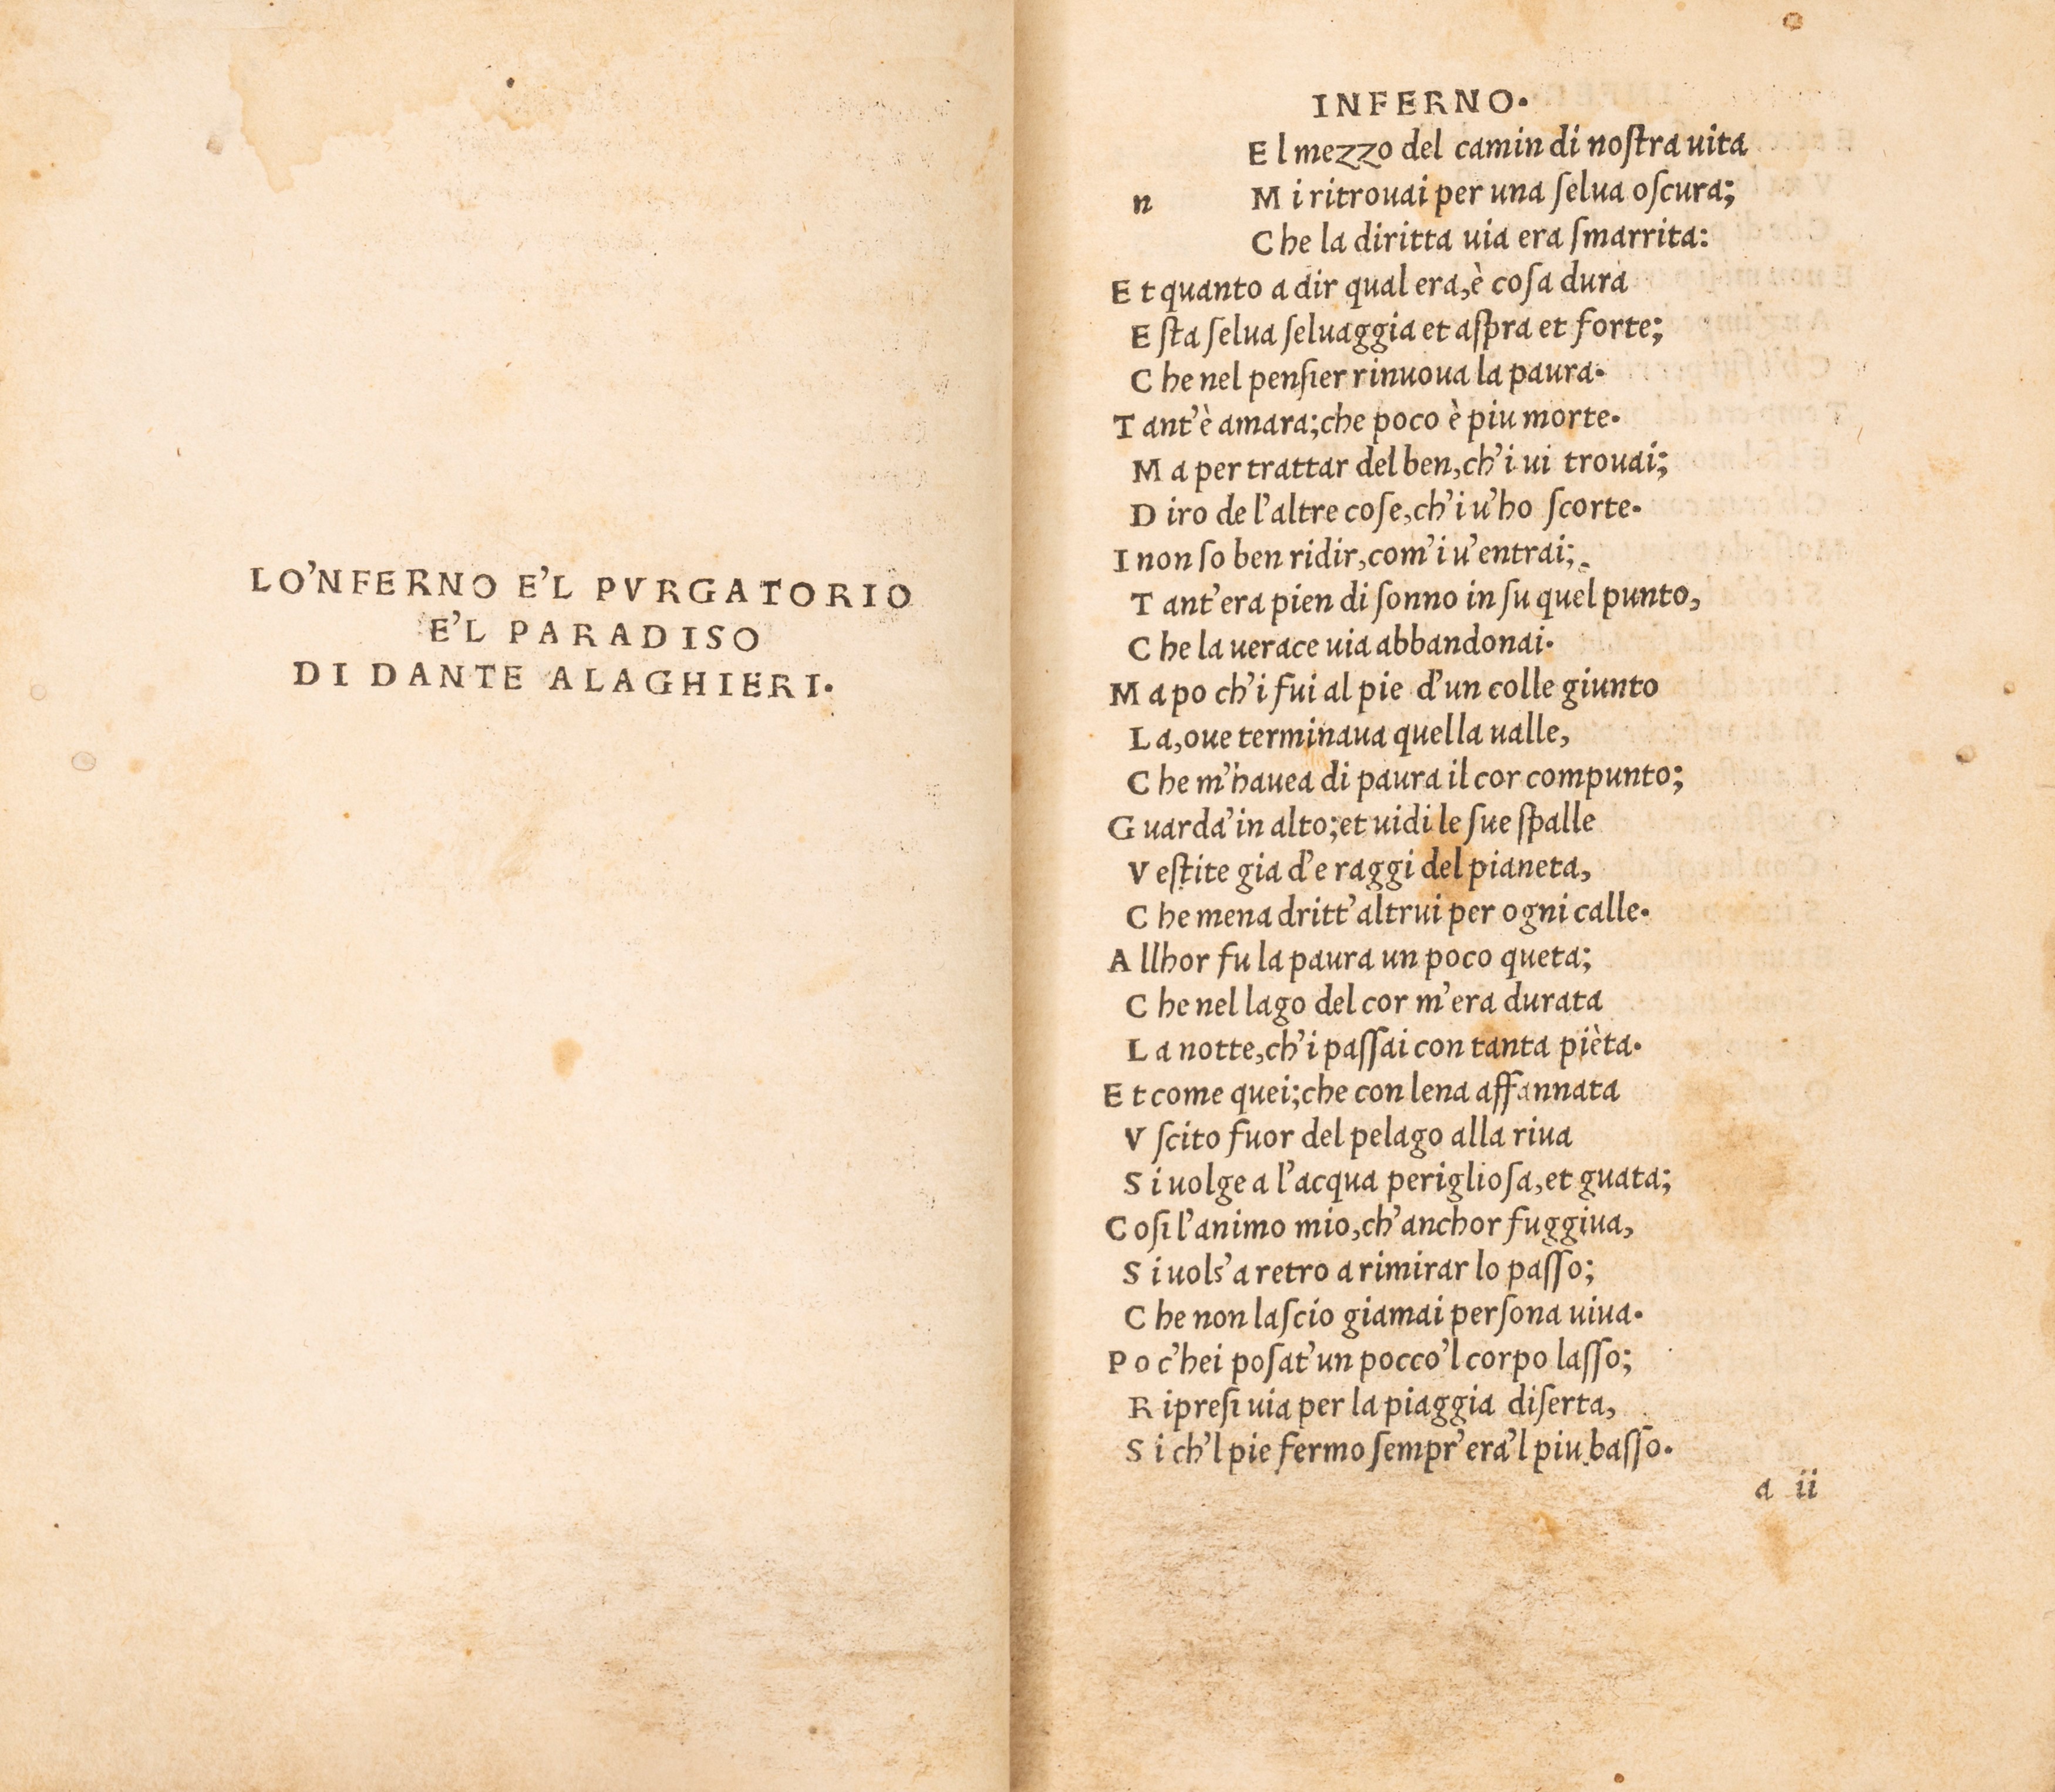 LO'NFERNO E'L PVRGATORIO
E'L PARADISO
DI DANTE ALAGHIERI.
INFERNO.
E l mezzo del camin di noſtra uita
n M i ritrouai per una ſelua oſcura;
C he la diritta uia era ſmarrita:
E t quanto a dir qual era, è coſa dura
E ſta ſelua ſeluaggia et aſpra et forte;
C he nel penſier rinuoua la paura.
T ant'è amara; che poco è piu morte.
M a per trattar del ben, ch'i ui trouai;
D iro de l'altre coſe, ch'i u'ho ſcorte.
I non ſo ben ridir, com'i u'entrai;
T ant'era pien di ſonno in ſu quel punto,
C he la uerace uia abbandonai.
M a po ch'i fui al pie d'un colle giunto
L a, oue terminaua quella ualle,
C he m'hauea di paura il cor compunto;
G uarda'in alto; et uidi le ſue ſpalle
V eſtite gia d'e raggi del pianeta,
C he mena dritt'altrui per ogni calle.
A llhor fu la paura un poco queta;
C he nel lago del cor m'era durata
L a notte, ch'i paſſai con tanta pièta.
E t come quei; che con lena affannata
V ſcito fuor del pelago alla riua
S i uolge a l'acqua periglioſa, et guata;
C oſi l'animo mio, ch'anchor fuggiua,
S i uols'a retro a rimirar lo paſſo;
C he non laſcio giamai perſona uiua.
P o c'hei poſat'un pocco'l corpo laſſo;
R ipreſi uia per la piaggia diſerta,
S i ch'l pie fermo ſempr'era'l piu baſſo.
a ii